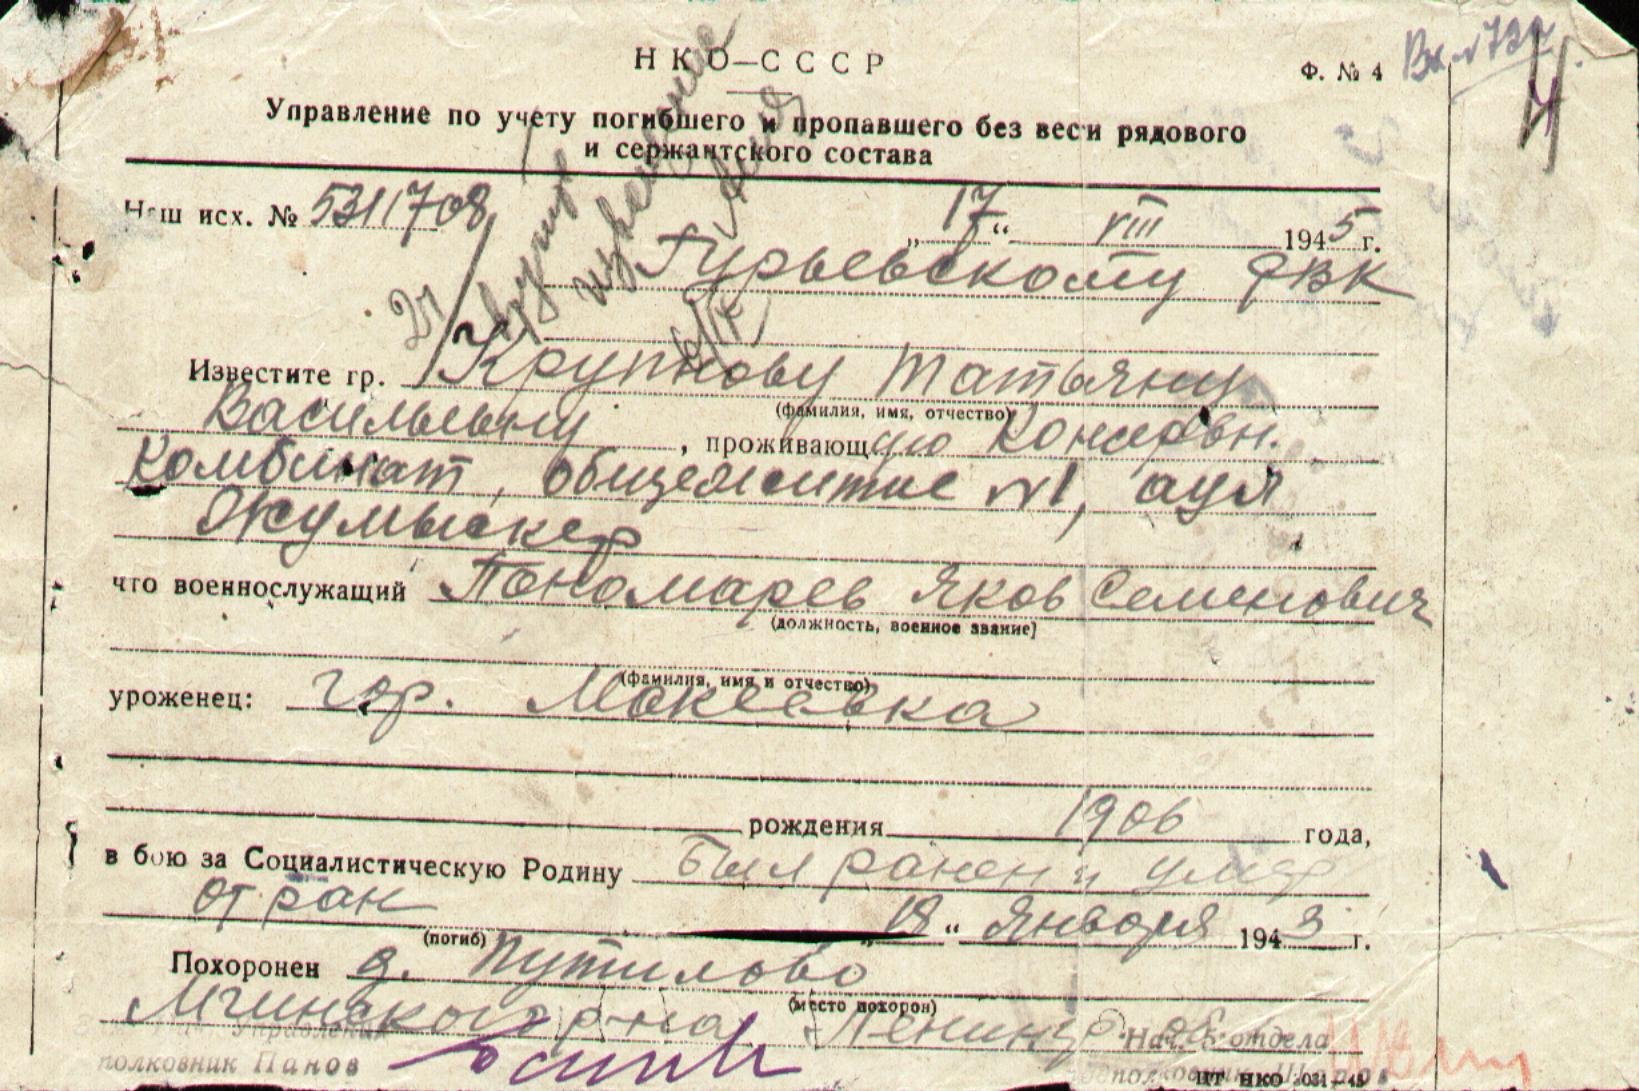 Вх. № 732
НКО—СССР
Ф. № 4
4
Управление по учету погибшего и пропавшего без вести рядового
и сержантского состава
Наш исх. № 5311708
„17“ VIII 1945 г.
Гурьевскому РВК
Вручите извещение
Известите гр. Крупнову Татьяну
(фамилия, имя, отчество)
Васильевну, проживающую Консервн.
комбинат, общежитие №1, аул
Жумыскер
что военнослужащий Пономарев Яков Семенович
(должность, военное звание)
(фамилия, имя и отчество)
уроженец: гор. Макеевка
рождения 1906 года,
в бою за Социалистическую Родину был ранен и умер
от ран „18“ января 1943 г.
(погиб)
Похоронен д. Путилово
(место похорон)
Мгинского р-на Ленингр. об.
Управления
полковник Панов
Нач. 5 отдела
подполковник
цт нко